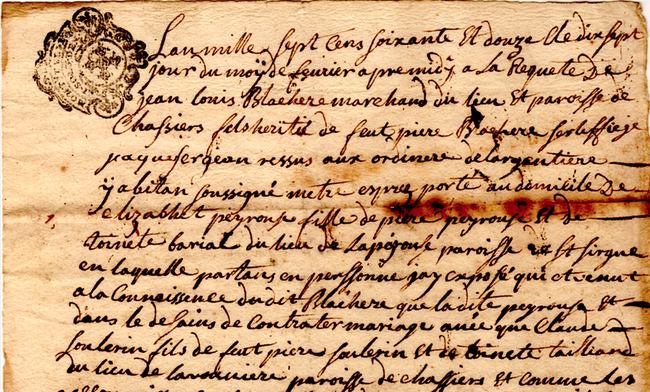 Lan mille sept cens soixante et douze et le dix sept
jour du moy de fevrier apre midy a la Requete De
jean louis Blachere marchand du lieu et paroisse de
Chassiers fils heritié de feut piere Blachere
ressus aux ordinere de largentiere
y abitan soussigné metre expres porté au domicile De
elizabhet peyrouse fille de piere peyrouse et de
toinete barial du lieu de Lapeyrouse paroisse de st sirgue
en laquelle parlans en perssonne jay exposé qui et venut
a la Connoissence dudit Blachere que la dite peyrouse et
dans le desains de Contrater mariage avec que Claude
soulerin fils de feut piere soulerin et de toinete tailland
du lieu de paroisse de chassiers et comme les